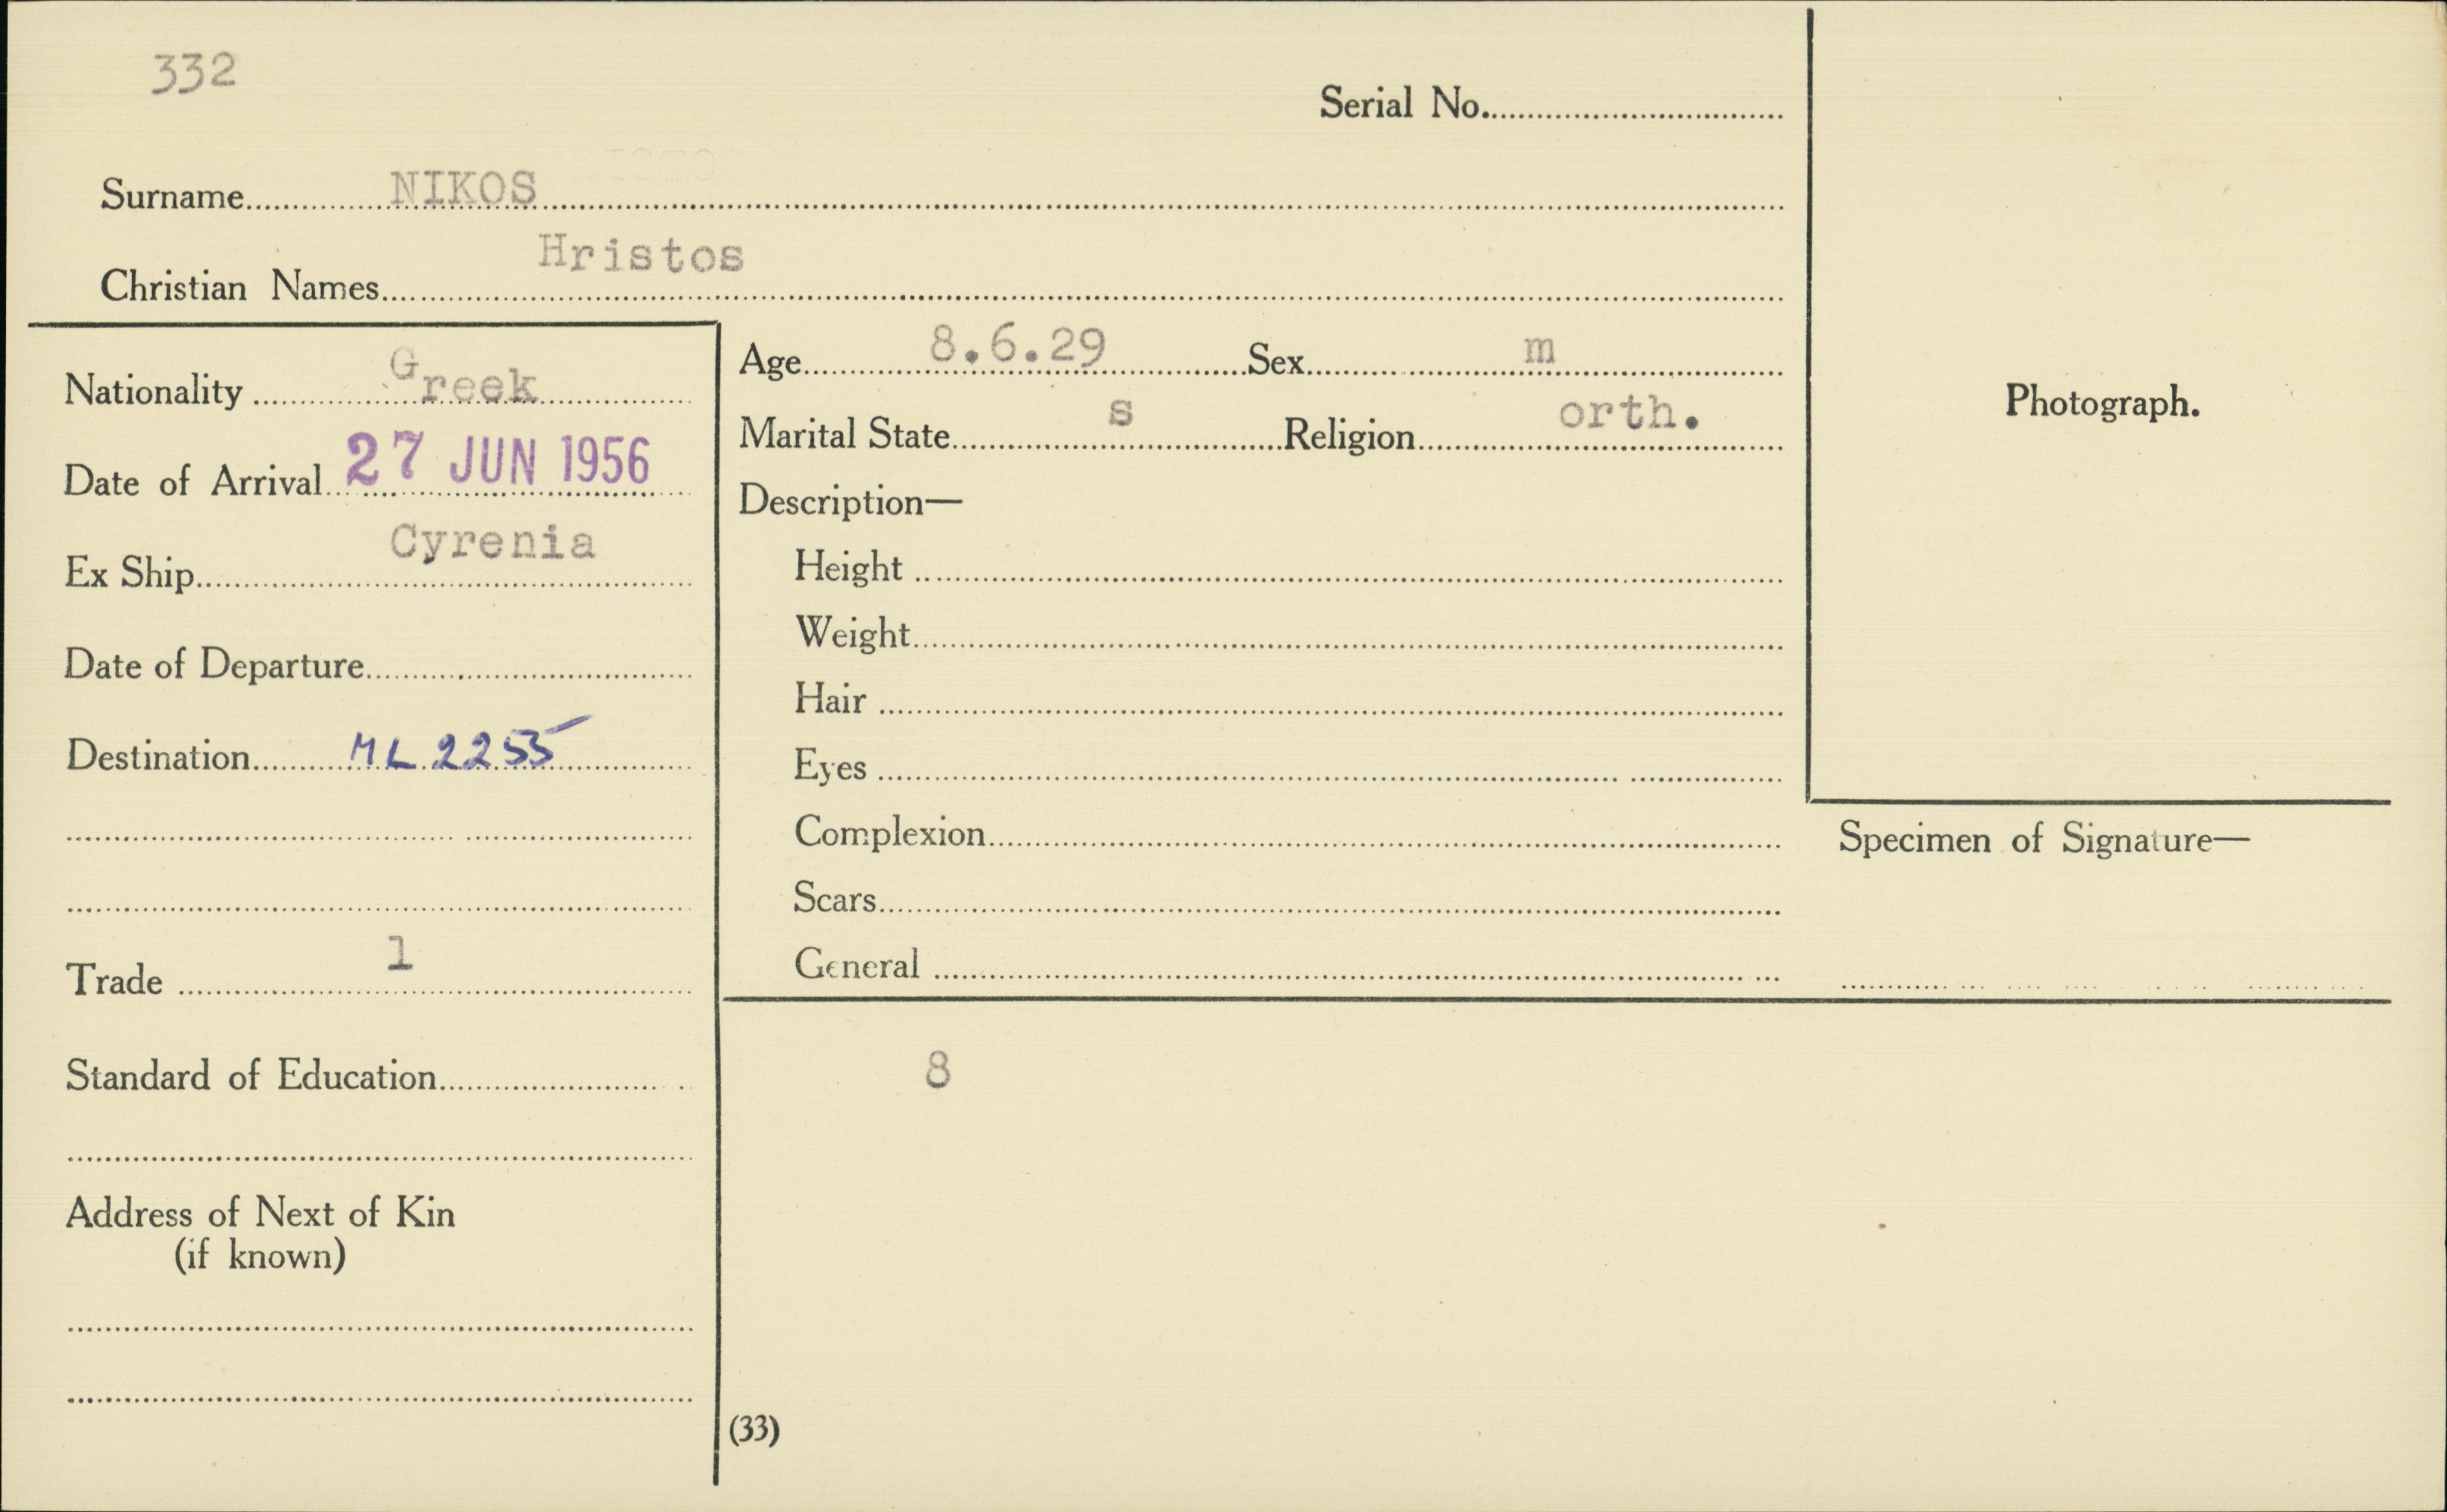 332
Serial No.
Surname NIKOS
Christian Names Hristos
Nationality Greek
Date of Arrival 27 JUN 1956
Ex Ship Cyrenia
Date of Departure
Destination ML 2255
Trade 1
Standard of Education
Address of Next of Kin
(if known)
Age 8.6.29 Sex m
Marital State s Religion orth.
Description—
Height
Weight
Hair
Eyes
Complexion
Scars
General
8
(33)
Photograph.
Specimen of Signature—